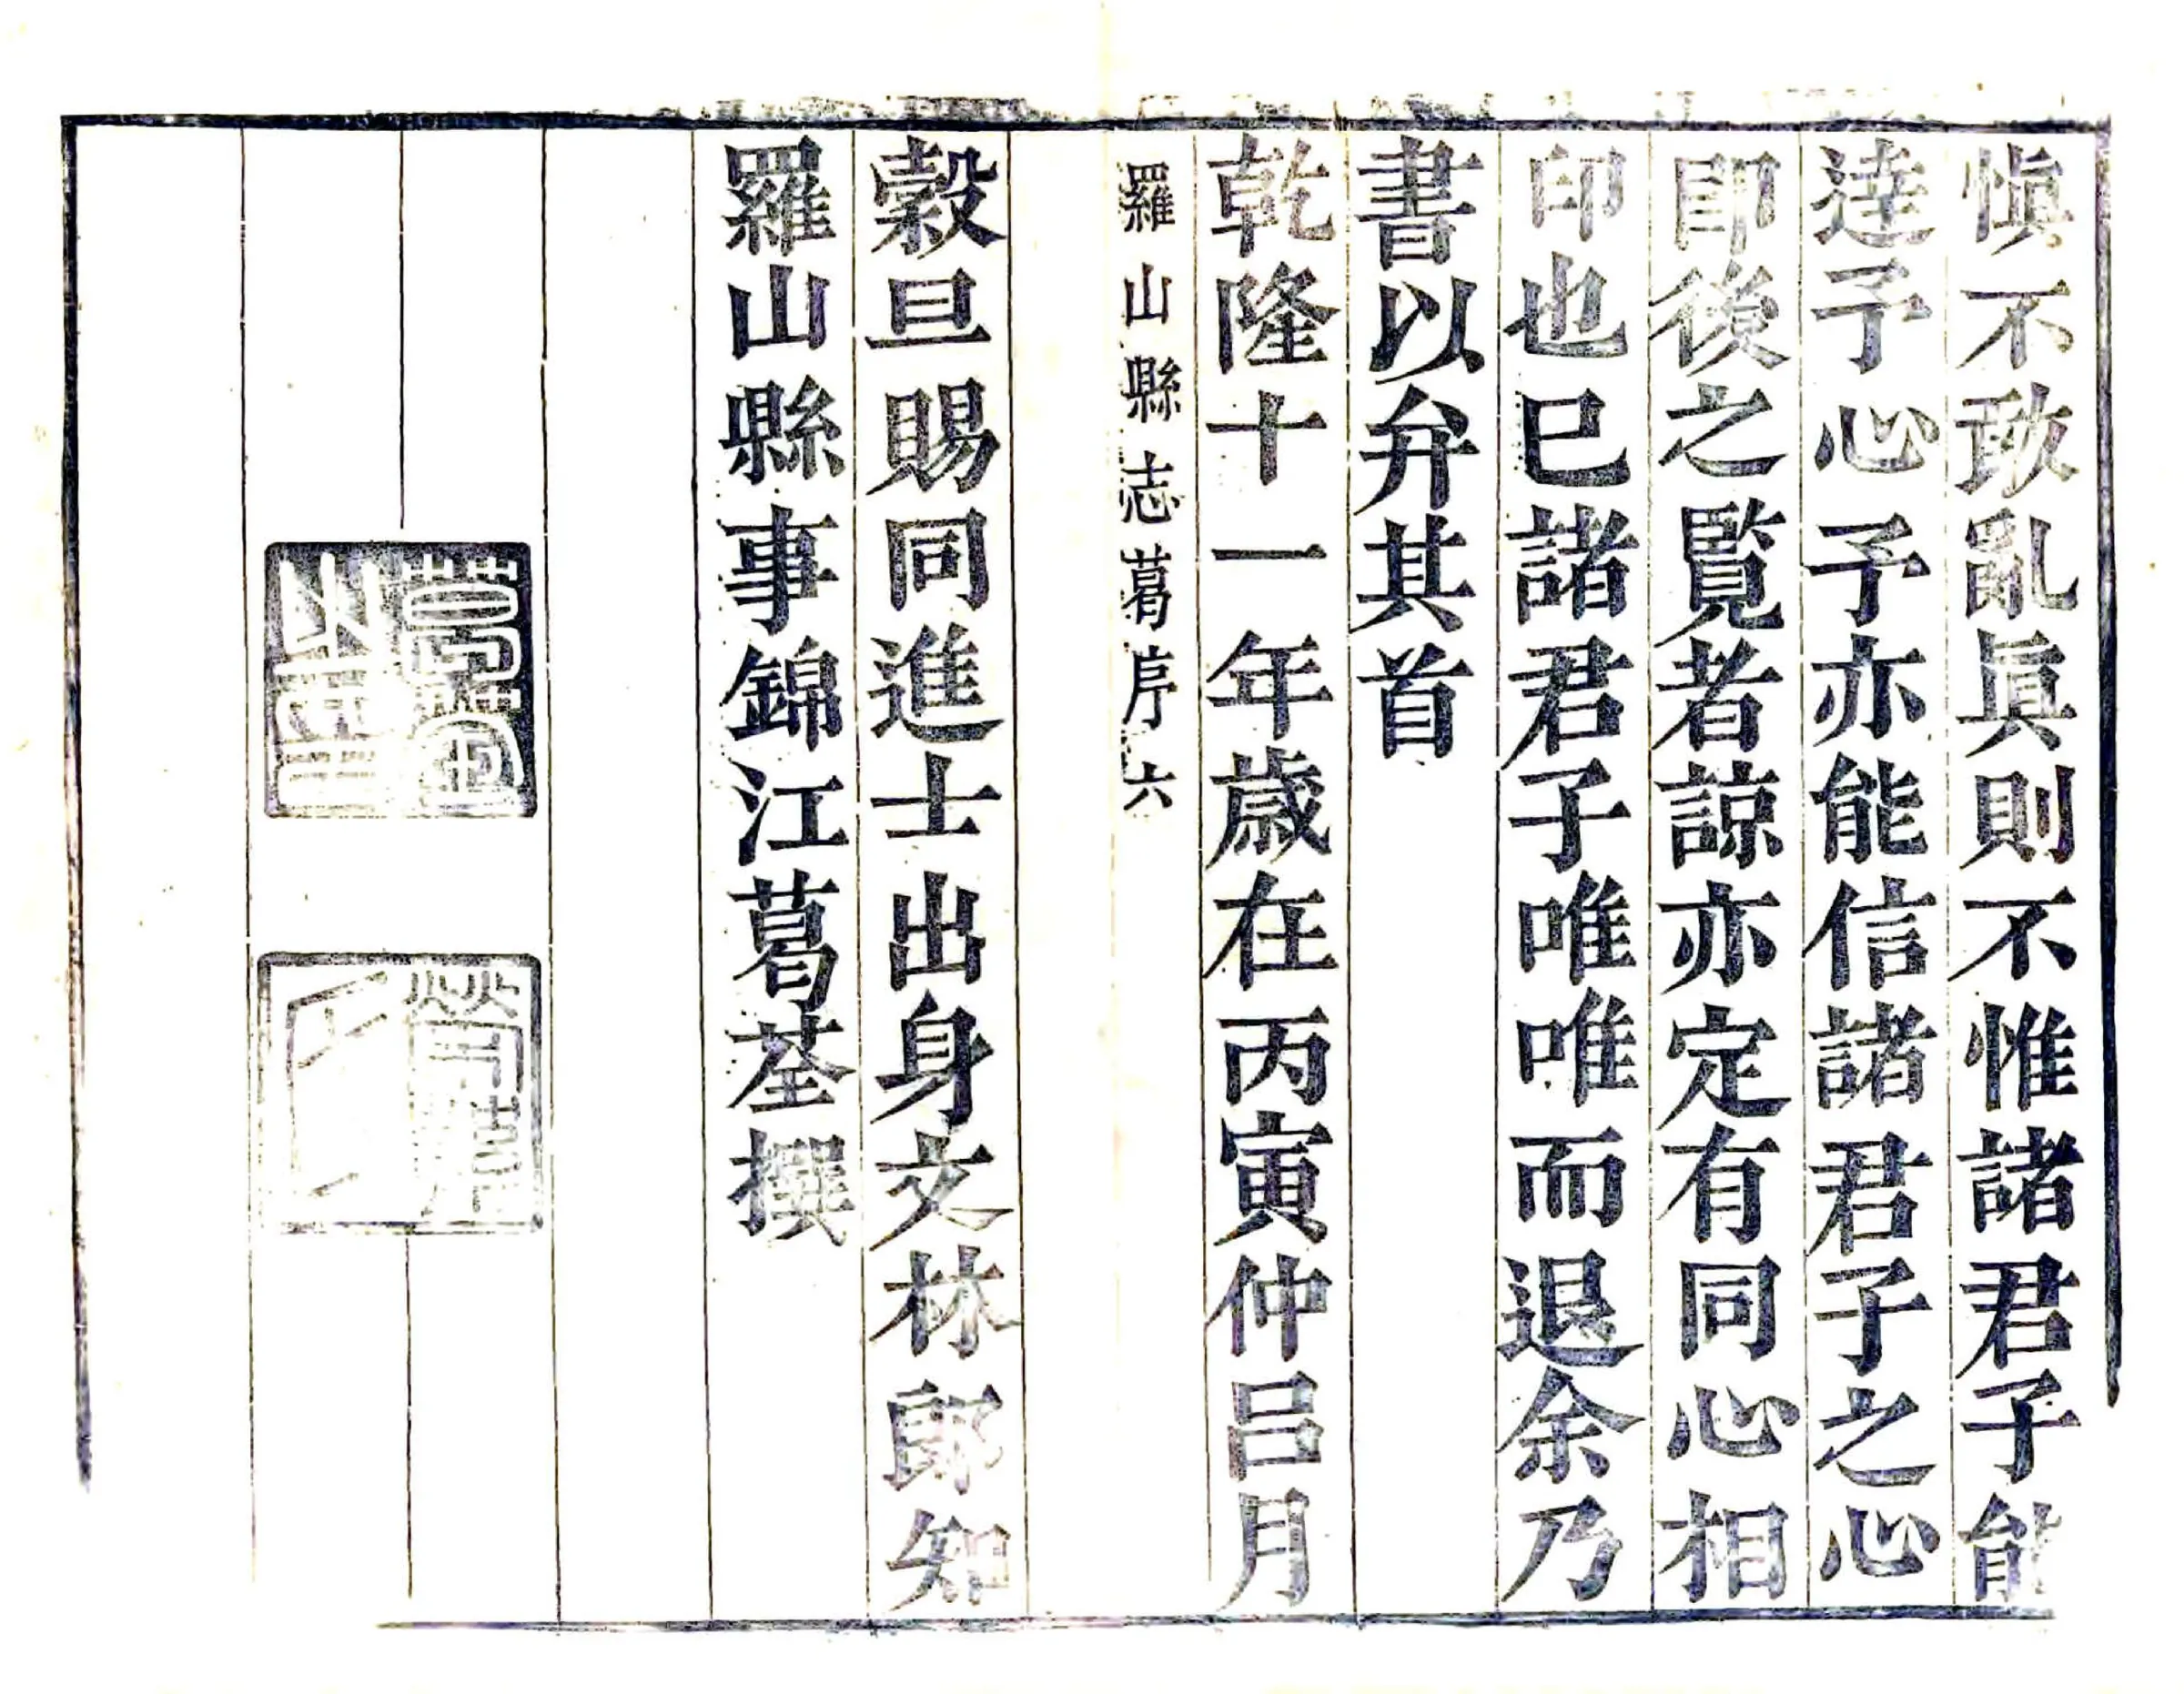 慎不敢亂眞則不惟諸君子能
逹予心予亦能信諸君子之心
即後之覧者諒亦定有同心相
印也已諸君子唯唯而退余乃
書以弁其首
乾隆十一年歲在丙寅仲呂月
羅山縣志葛序六
糓旦賜同進士出身文林郎知
羅山縣事錦江葛荃撰